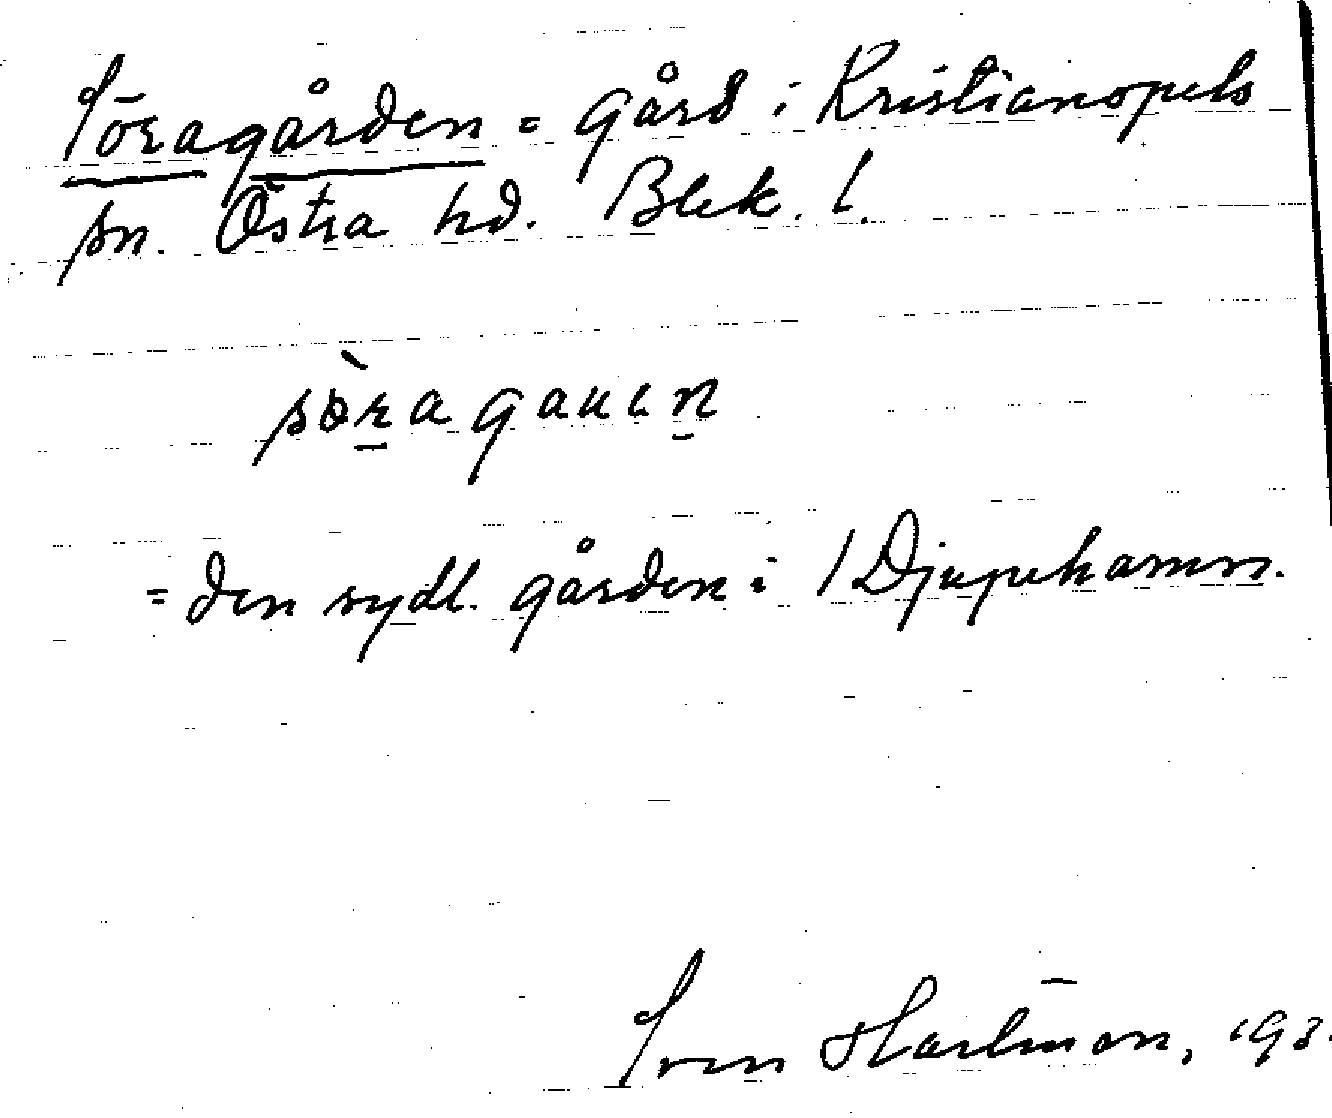 Söragården = gård i Kristianopels
sn. Östra hd. Blek. l.
sö̀ragauen
= den sydl. gården i / Djupehamn.
Sven Hartman, 193